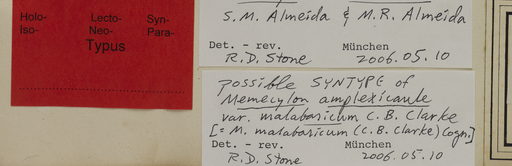 Holo- Lecto- Syn-
Iso- Neo- Para-
Typus
S. M. Almeida & M. R. Almeida
Det. - rev. München
R. D. Stone 2006.05.10
possible SYNTYPE of
Memecylon amplexicaule
var. malabaricum C. B. Clarke
[= M. malabaricum (C. B. Clarke) Cogn.]
Det. - rev. München
R. D. Stone 2006.05.10